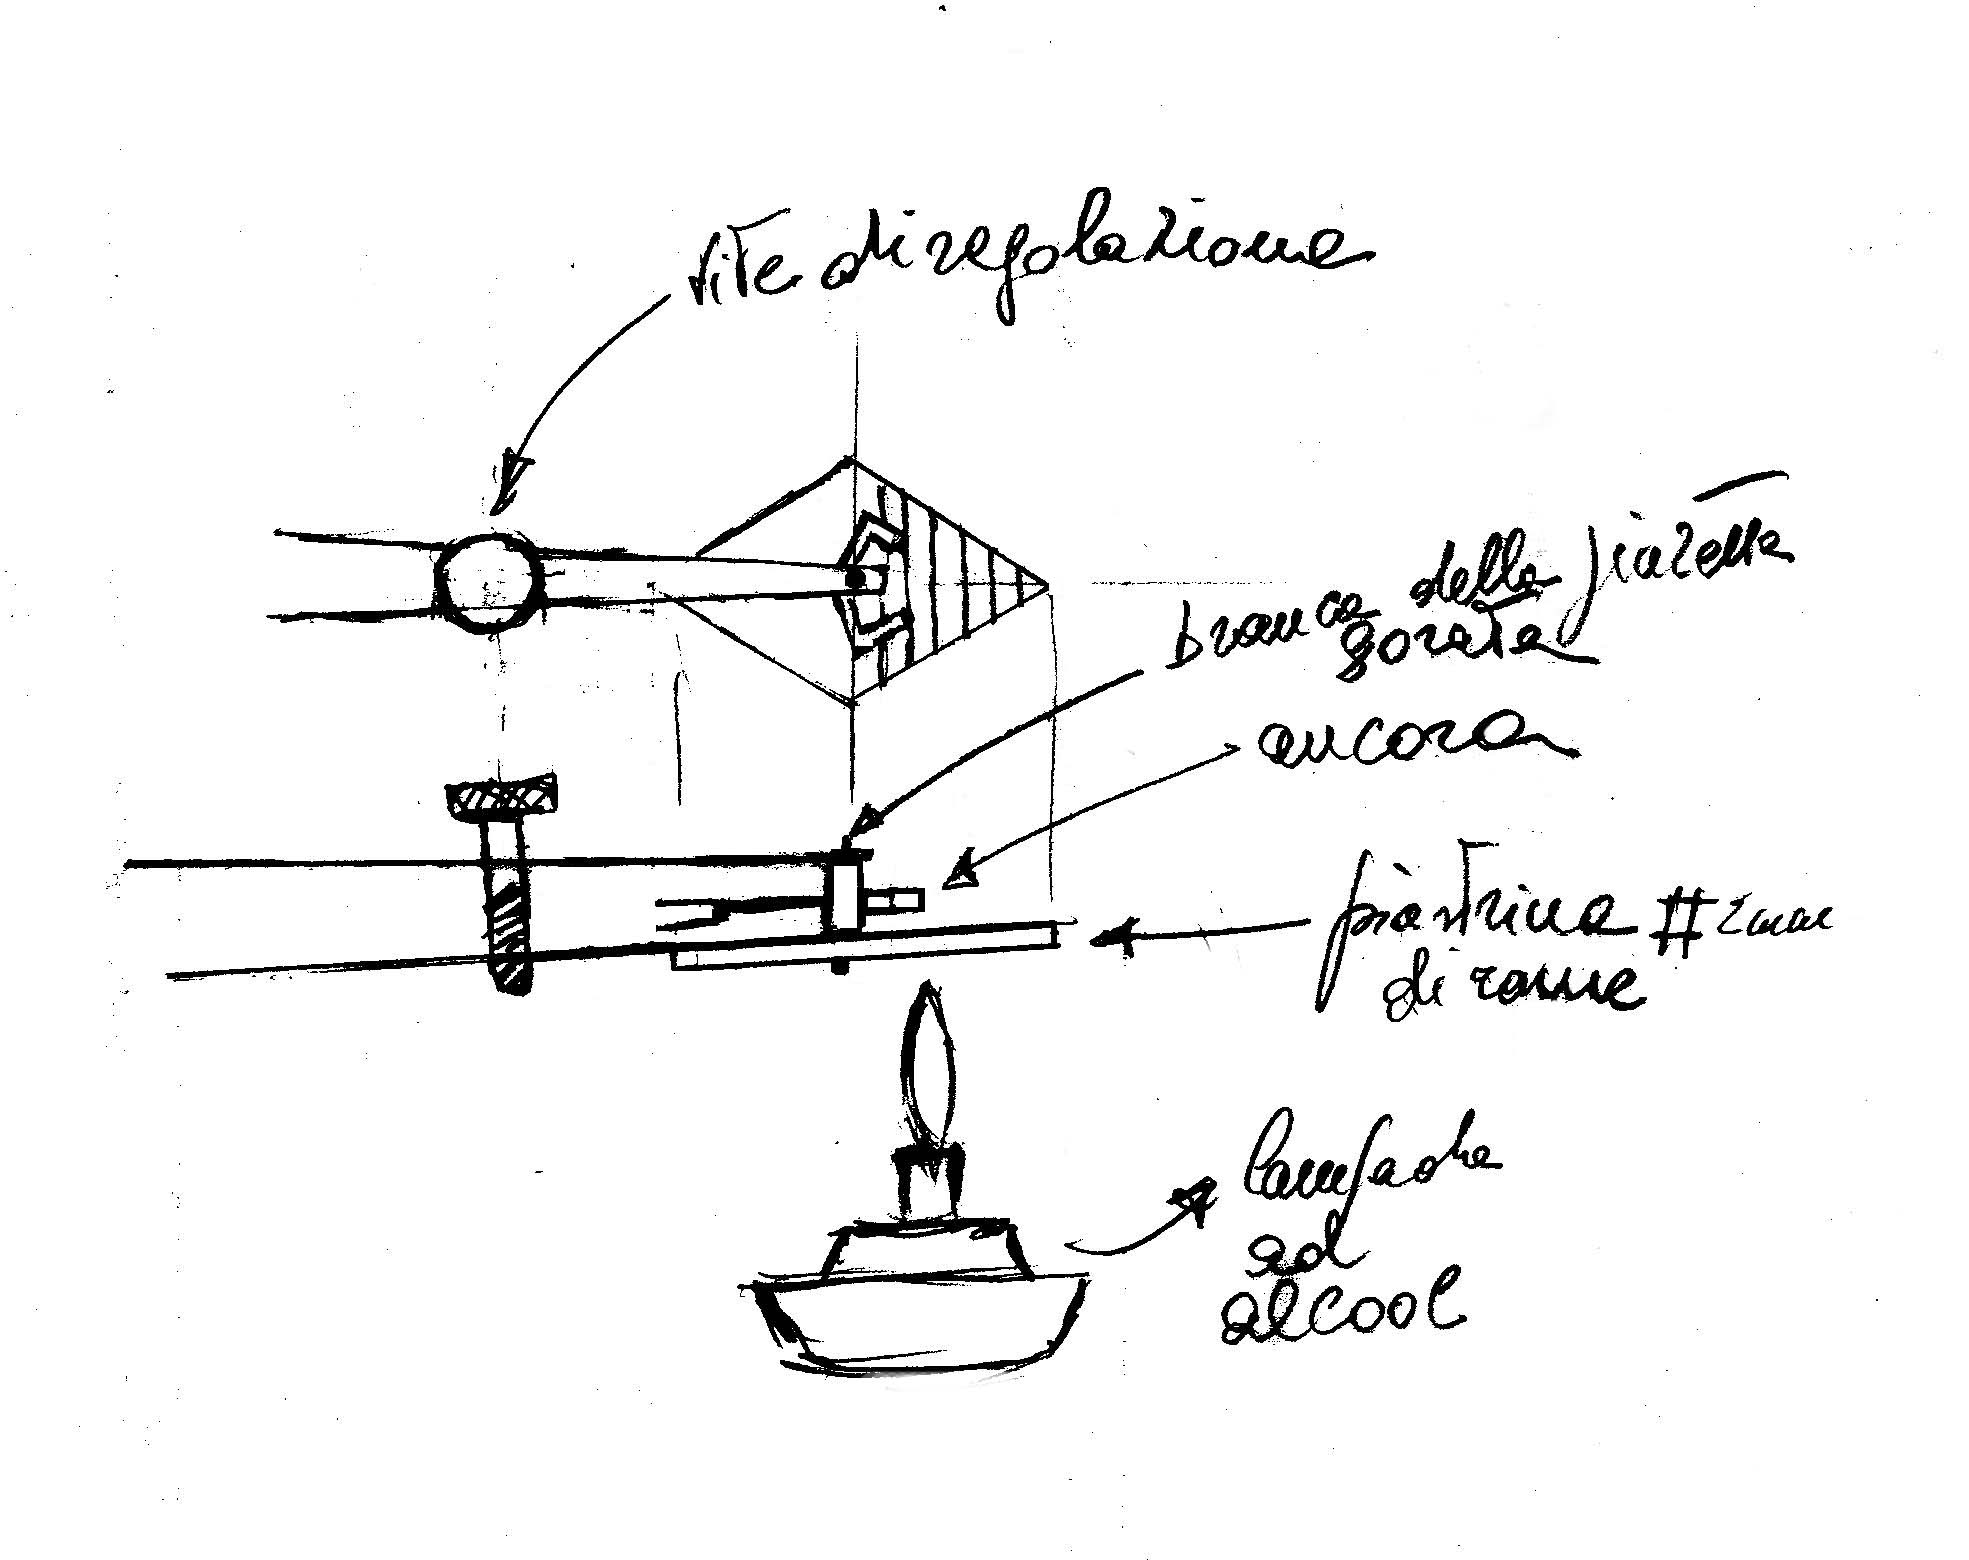 vite di regolazione
branca della piazetta
gorata
ancora
piastrina # 2mm
di rame
lampada
ad
alcool